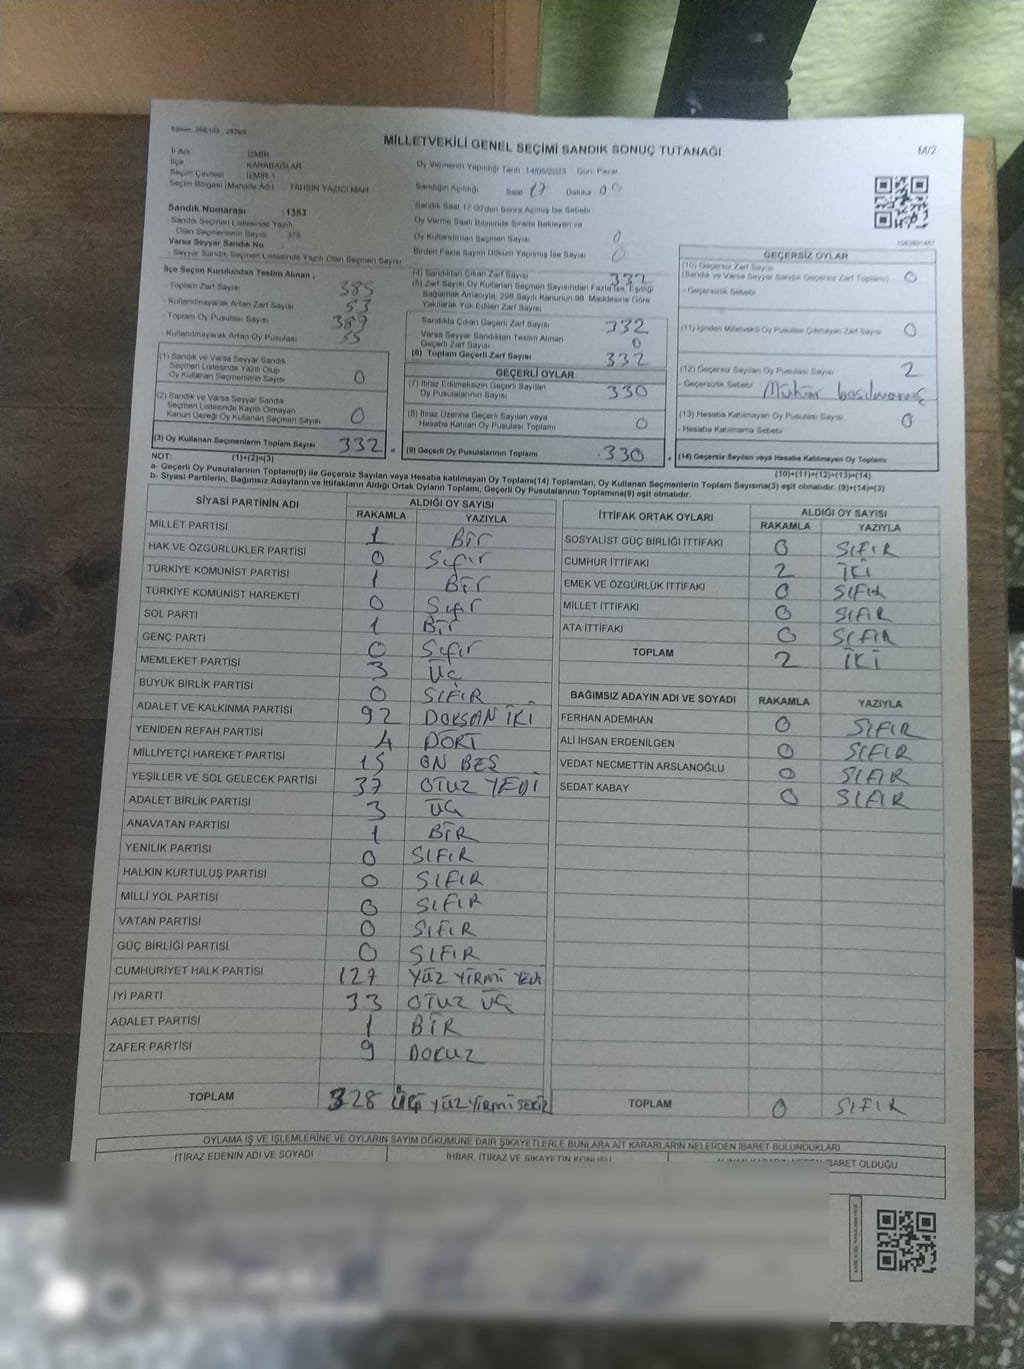 MİLLETVEKİLİ GENEL SEÇİMİ SANDIK SONUÇ TUTANAĞI
M/2
İl Adı : İZMİR
İlçe : KARABAĞLAR
Seçim Çevresi : İZMİR-1
Seçim Bölgesi (Mahalle Adı) : TAHSİN YAZICI MAH
Oy Vermenin Yapıldığı Tarih : 14/05/2023 Gün: Pazar
Sandığın Açılışı Saat 17 Dakika 00
Sandık Saat 17:00'den Sonra Açılmış İse Sebebi :
Oy Verme Saati Bitiminde Sırada Bekleyen ve
Oy Kullandırılan Seçmen Sayısı 0
Birden Fazla Sayım Döküm Yapılmış İse Sayısı 0
Sandık Numarası : 1393
Sandık Seçmen Listesinde Yazılı
Olan Seçmenlerin Sayısı : 378
Varsa Seyyar Sandık No
- Seyyar Sandık Seçmen Listesinde Yazılı Olan Seçmen Sayısı:
İlçe Seçim Kurulundan Teslim Alınan ;
Toplam Zarf Sayısı 385
Kullanılmayarak Artan Zarf Sayısı 53
- Toplam Oy Pusulası Sayısı
- Kullanılmayarak Artan Oy Pusulası 55
(1) Sandık ve Varsa Seyyar Sandık
Seçmen Listesinde Yazılı Olup
Oy Kullanan Seçmenlerin Sayısı 0
(2) Sandık ve Varsa Seyyar Sandık
Seçmen Listesinde Kayıtlı Olmayan
Kanun Gereği Oy Kullanan Seçmen Sayısı 0
(3) Oy Kullanan Seçmenlerin Toplam Sayısı 332 =
(1)+(2)=(3)
(4) Sandıktan Çıkan Zarf Sayısı 332
(5) Zarf Sayısı Oy Kullanan Seçmen Sayısından Fazla İse, Eşitliği
Bağlamak Amacıyla; 298 Sayılı Kanunun 98. Maddesine Göre
Yakılarak Yok Edilen Zarf Sayısı
Sandıkta Çıkan Geçerli Zarf Sayısı 332
Varsa Seyyar Sandıktan Teslim Alınan
Geçerli Zarf Sayısı 0
(6) Toplam Geçerli Zarf Sayısı 332
GEÇERLİ OYLAR
(7) İtiraz Edilmeksizin Geçerli Sayılan
Oy Pusulalarının Sayısı 330
(8) İtiraz Üzerine Geçerli Sayılan veya
Hesaba Katılan Oy Pusulası Toplamı 0
(9) Geçerli Oy Pusulalarının Toplamı 330 +
GEÇERSİZ OYLAR
(10) Geçersiz Zarf Sayısı
(Sandık ve Varsa Seyyar Sandık Geçersiz Zarf Toplamı) 0
- Geçersizlik Sebebi
(11) İçinden Milletvekili Oy Pusulası Çıkmayan Zarf Sayısı 0
(12) Geçersiz Sayılan Oy Pusulası Sayısı 2
- Geçersizlik Sebebi : Mühür basılmamış
(13) Hesaba Katılmayan Oy Pusulası Sayısı 0
- Hesaba Katılmama Sebebi
(14) Geçersiz Sayılan veya Hesaba Katılmayan Oy Toplamı
(10)+(11)+(12)+(13)=(14)
NOT:
a- Geçerli Oy Pusulalarının Toplamı(9) ile Geçersiz Sayılan veya Hesaba katılmayan Oy Toplamı(14) Toplamları, Oy Kullanan Seçmenlerin Toplam Sayısına(3) eşit olmalıdır. (9)+(14)=(3)
b- Siyasi Partilerin, Bağımsız Adayların ve İttifakların Aldığı Ortak Oyların Toplamı, Geçerli Oy Pusulalarının Toplamına(9) eşit olmalıdır.
SİYASİ PARTİNİN ADI ALDIĞI OY SAYISI
RAKAMLA YAZIYLA
MİLLET PARTİSİ 1 Bir
HAK VE ÖZGÜRLÜKLER PARTİSİ 0 Sıfır
TÜRKİYE KOMÜNİST PARTİSİ 1 Bir
TÜRKİYE KOMÜNİST HAREKETİ 0 Sıfır
SOL PARTİ 1 Bir
GENÇ PARTİ 0 Sıfır
MEMLEKET PARTİSİ 3 Üç
BÜYÜK BİRLİK PARTİSİ 0 SIFIR
ADALET VE KALKINMA PARTİSİ 92 DOKSAN İKİ
YENİDEN REFAH PARTİSİ 4 DÖRT
MİLLİYETÇİ HAREKET PARTİSİ 15 ON BEŞ
YEŞİLLER VE SOL GELECEK PARTİSİ 37 OTUZ YEDİ
ADALET BİRLİK PARTİSİ 3 ÜÇ
ANAVATAN PARTİSİ 1 BİR
YENİLİK PARTİSİ 0 SIFIR
HALKIN KURTULUŞ PARTİSİ 0 SIFIR
MİLLİ YOL PARTİSİ 0 SIFIR
VATAN PARTİSİ 0 SIFIR
GÜÇ BİRLİĞİ PARTİSİ 0 SIFIR
CUMHURİYET HALK PARTİSİ 127 YÜZ YİRMİ YEDİ
İYİ PARTİ 33 OTUZ ÜÇ
ADALET PARTİSİ 1 BİR
ZAFER PARTİSİ 9 DOKUZ
TOPLAM 328 ÜÇ YÜZ YİRMİ SEKİZ
İTTİFAK ORTAK OYLARI ALDIĞI OY SAYISI
RAKAMLA YAZIYLA
SOSYALİST GÜÇ BİRLİĞİ İTTİFAKI 0 SIFIR
CUMHUR İTTİFAKI 2 İKİ
EMEK VE ÖZGÜRLÜK İTTİFAKI 0 SIFIR
MİLLET İTTİFAKI 0 SIFIR
ATA İTTİFAKI 0 SIFIR
TOPLAM 2 İKİ
BAĞIMSIZ ADAYIN ADI VE SOYADI RAKAMLA YAZIYLA
FERHAN ADEMHAN 0 SIFIR
ALİ İHSAN ERDENİLGEN 0 SIFIR
VEDAT NECMETTİN ARSLANOĞLU 0 SIFIR
SEDAT KABAY 0 SIFIR
TOPLAM 0 SIFIR
OYLAMA İŞ VE İŞLEMLERİNE VE OYLARIN SAYIM DÖKÜMÜNE DAİR ŞİKAYETLERLE BUNLARA AİT KARARLARIN NELERDEN İBARET BULUNDUKLARI
İTİRAZ EDENİN ADI VE SOYADI İHBAR, İTİRAZ VE ŞİKAYETİN KONUSU İBARET OLDUĞU